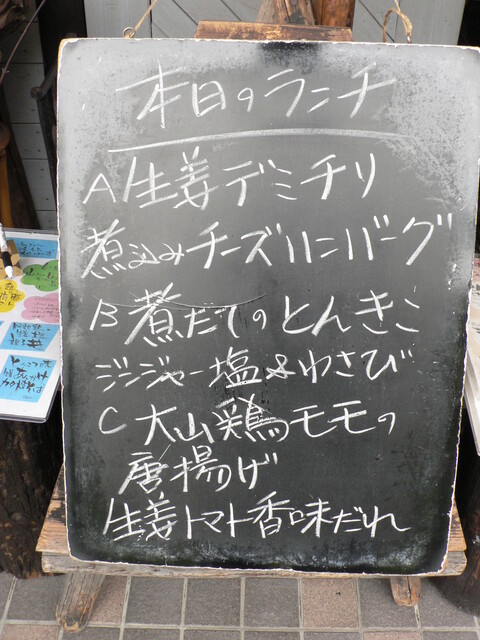 本日のランチ
A 生姜デミチリ
煮込みチーズハンバーグ
B 煮だてのとんきこ
ジンジャー塩&わさび
C 大山鶏モモの
唐揚げ
生姜トマト香味だれ